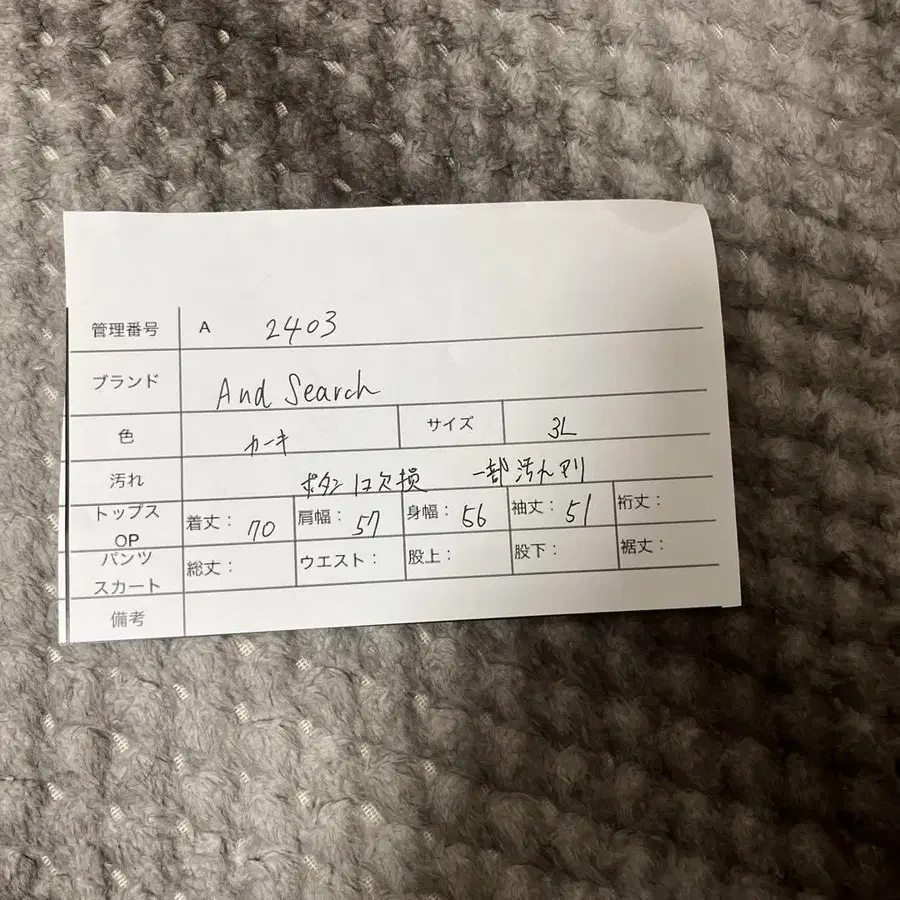 管理番号 A 2403
ブランド And Search
色 カーキ サイズ 3L
汚れ ボタン 欠損 一部汚れアリ
トップス OP 着丈： 70 肩幅： 57 身幅： 56 袖丈： 51 裄丈：
パンツ スカート 総丈： ウエスト： 股上： 股下： 裾丈：
備考